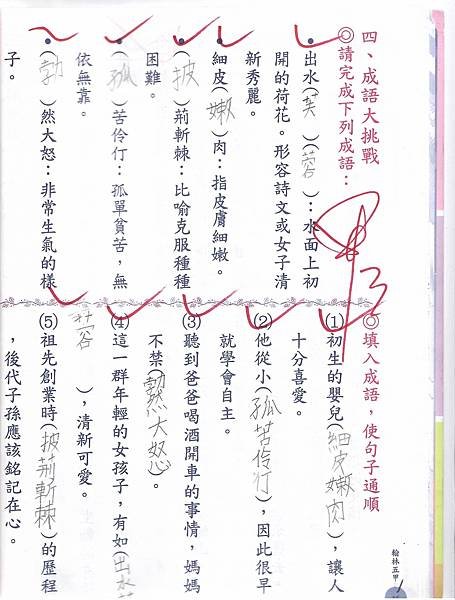 四、成語大挑戰
◎請完成下列成語：
•出水(芙)(蓉)：水面上初
開的荷花。形容詩文或女子清
新秀麗。
•細皮(嫩)肉：指皮膚細嫩。
•(披)荊斬棘：比喻克服種種
困難。
•(孤)苦伶仃：孤單貧苦，無
依無靠。
•(勃)然大怒：非常生氣的樣
子。
◎填入成語，使句子通順
⑴初生的嬰兒(細皮嫩肉)，讓人
十分喜愛。
⑵他從小(孤苦伶仃)，因此很早
就學會自主。
⑶聽到爸爸喝酒開車的事情，媽媽
不禁(勃然大怒)。
⑷這一群年輕的女孩子，有如(出水芙
蓉)，清新可愛。
⑸祖先創業時(披荊斬棘)的歷程
，後代子孫應該銘記在心。
翰林五甲